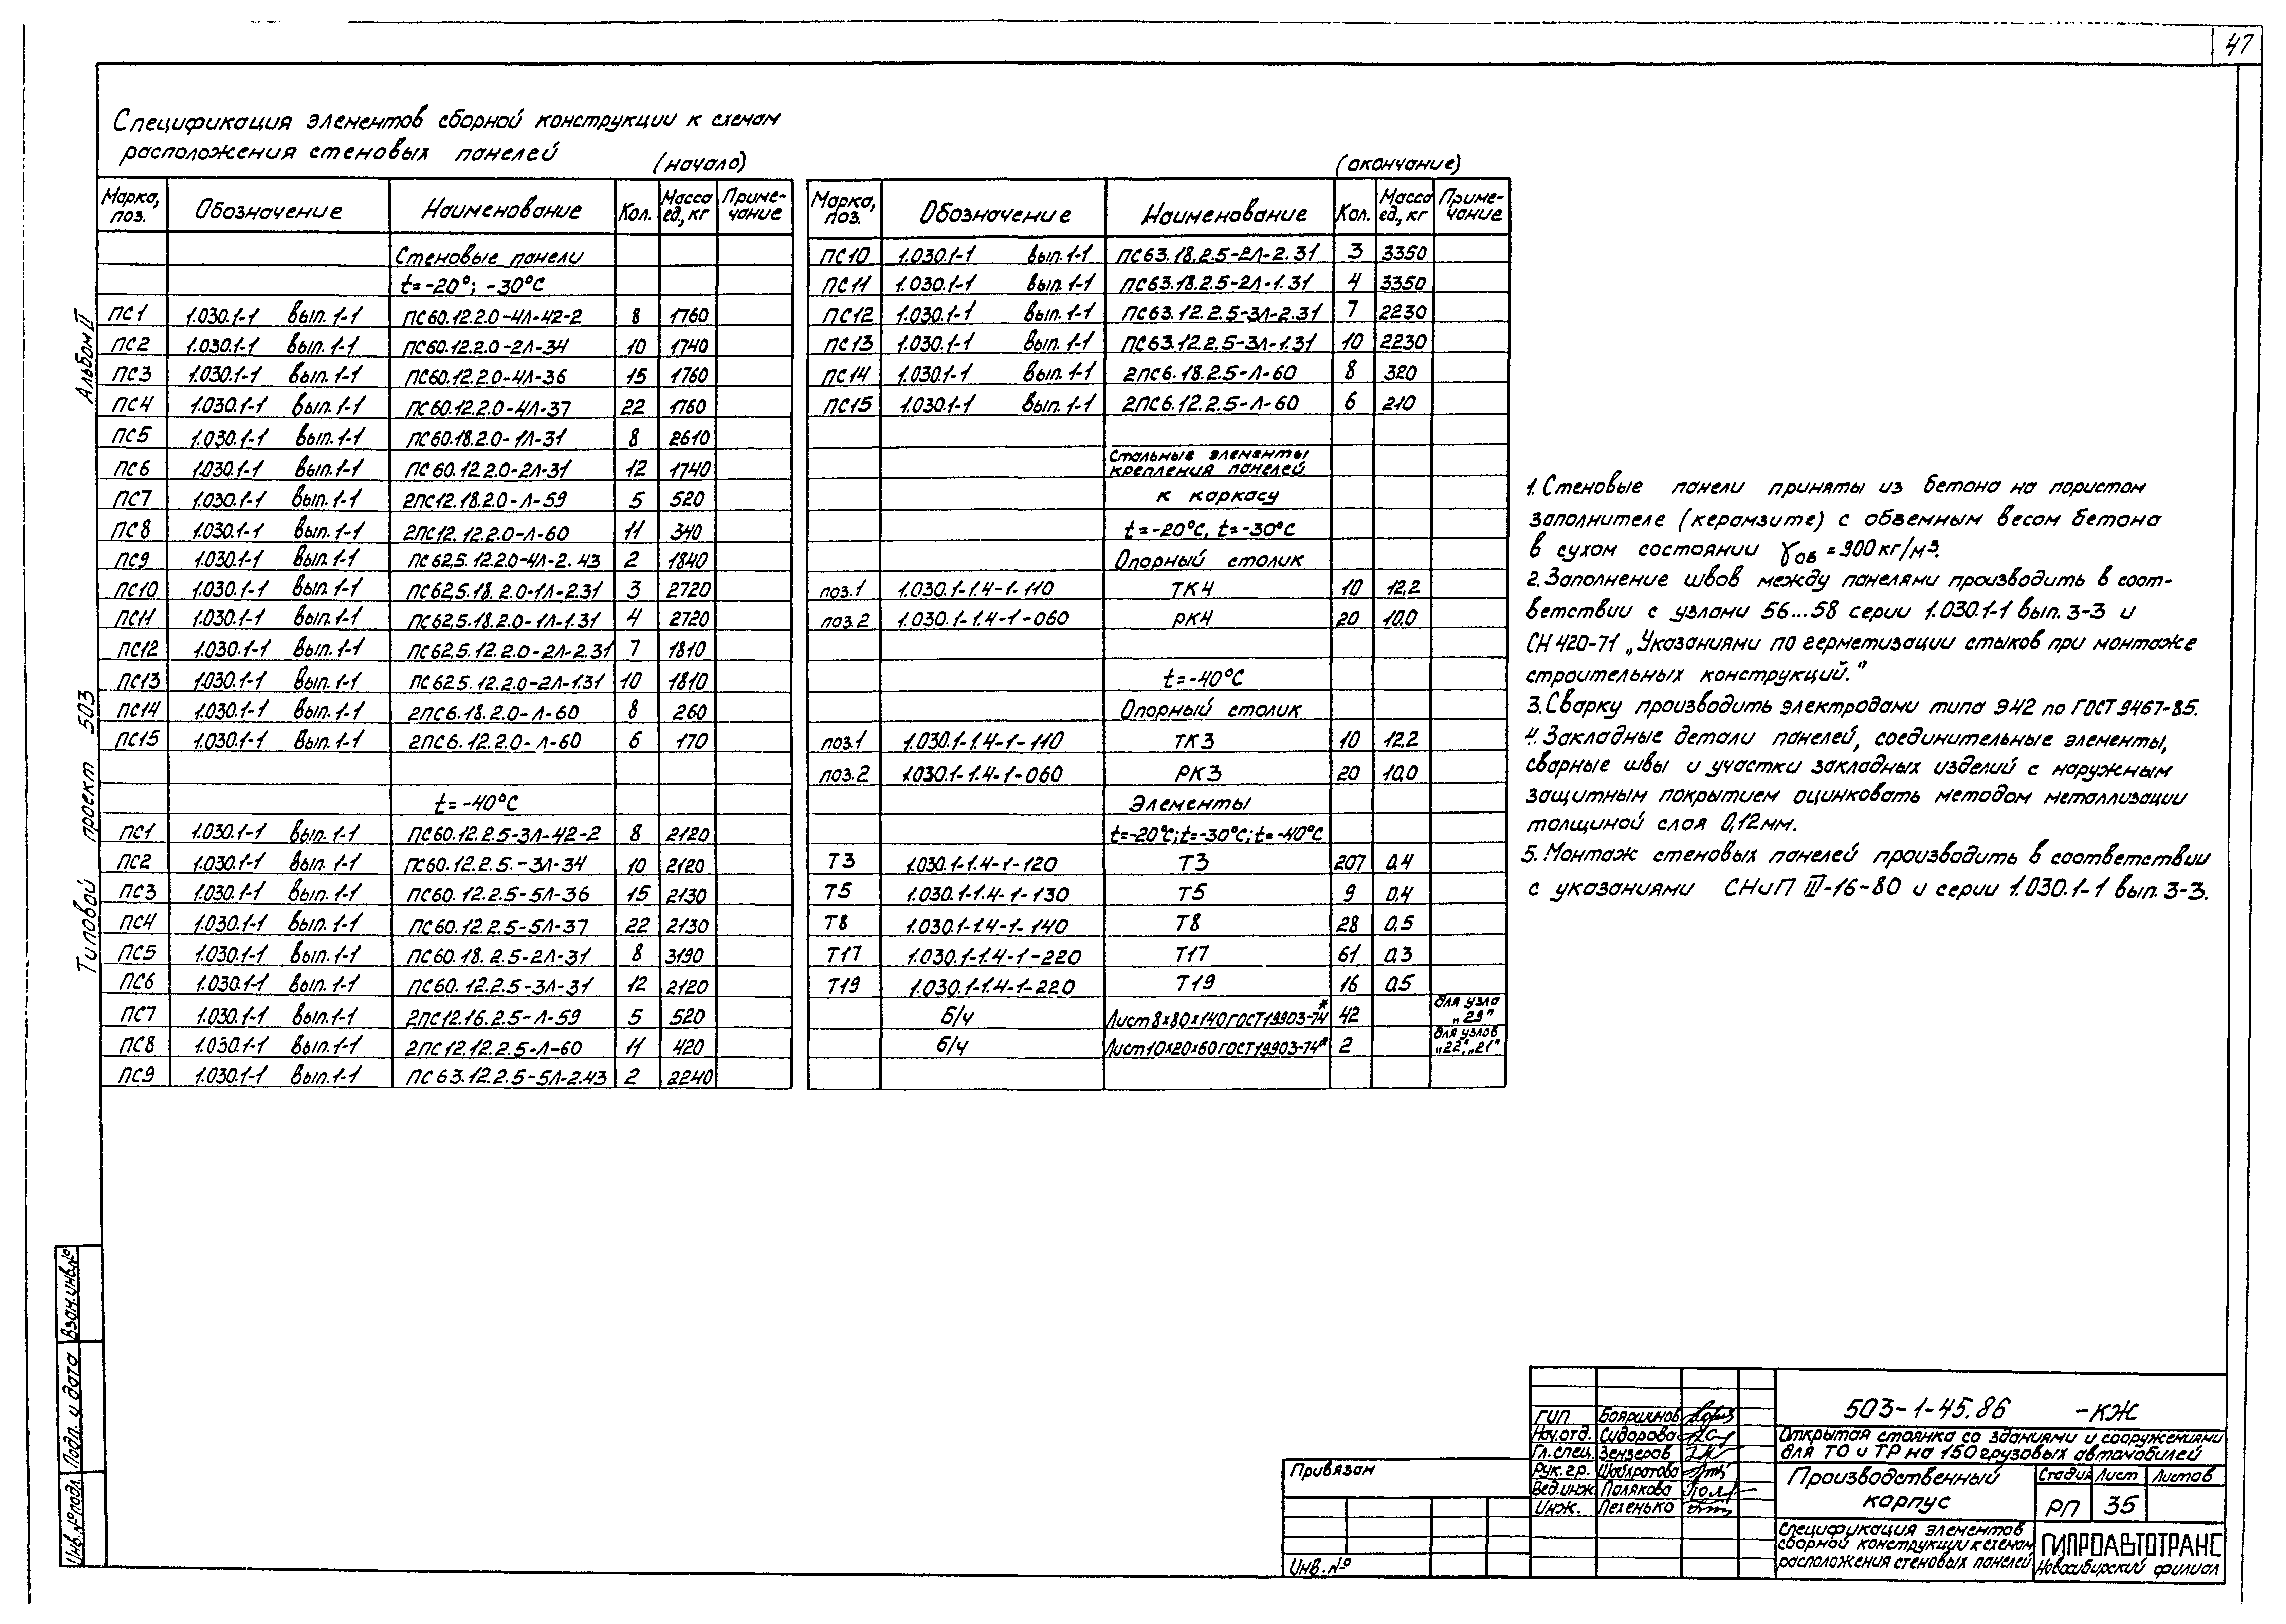 47
Спецификация элементов сборной конструкции к схемам
расположения стеновых панелей
(начало)
Марка, поз. Обозначение Наименование Кол. Масса ед., кг Примечание
Стеновые панели
t=-20°; -30°С
ПС1 1.030.1-1 вып. 1-1 ПС60.12.2.0-4Л-42-2 8 1760
ПС2 1.030.1-1 вып. 1-1 ПС60.12.2.0-2Л-34 10 1740
ПС3 1.030.1-1 вып. 1-1 ПС60.12.2.0-4Л-36 15 1760
ПС4 1.030.1-1 вып. 1-1 ПС60.12.2.0-4Л-37 22 1760
ПС5 1.030.1-1 вып. 1-1 ПС60.18.2.0-1Л-31 8 2610
ПС6 1.030.1-1 вып. 1-1 ПС60.12.2.0-2Л-31 12 1740
ПС7 1.030.1-1 вып. 1-1 2ПС12.18.2.0-Л-59 5 520
ПС8 1.030.1-1 вып. 1-1 2ПС12.12.2.0-Л-60 11 340
ПС9 1.030.1-1 вып. 1-1 ПС62,5.12.2.0-4Л-2.43 2 1840
ПС10 1.030.1-1 вып. 1-1 ПС62,5.18.2.0-1Л-2.31 3 2720
ПС11 1.030.1-1 вып. 1-1 ПС62,5.18.2.0-1Л-1.31 4 2720
ПС12 1.030.1-1 вып. 1-1 ПС62,5.12.2.0-2Л-2.31 7 1810
ПС13 1.030.1-1 вып. 1-1 ПС62,5.12.2.0-2Л-1.31 10 1810
ПС14 1.030.1-1 вып. 1-1 2ПС6.18.2.0-Л-60 8 260
ПС15 1.030.1-1 вып. 1-1 2ПС6.12.2.0-Л-60 6 170
t=-40°С
ПС1 1.030.1-1 вып. 1-1 ПС60.12.2.5-3Л-42-2 8 2120
ПС2 1.030.1-1 вып. 1-1 ПС60.12.2.5.-3Л-34 10 2120
ПС3 1.030.1-1 вып. 1-1 ПС60.12.2.5-5Л-36 15 2130
ПС4 1.030.1-1 вып. 1-1 ПС60.12.2.5-5Л-37 22 2130
ПС5 1.030.1-1 вып. 1-1 ПС60.18.2.5-2Л-31 8 3190
ПС6 1.030.1-1 вып. 1-1 ПС60.12.2.5-3Л-31 12 2120
ПС7 1.030.1-1 вып. 1-1 2ПС12.16.2.5-Л-59 5 520
ПС8 1.030.1-1 вып. 1-1 2ПС12.12.2.5-Л-60 11 420
ПС9 1.030.1-1 вып. 1-1 ПС63.12.2.5-5Л-2.43 2 2240
(окончание)
Марка, поз. Обозначение Наименование Кол. Масса ед., кг Примечание
ПС10 1.030.1-1 вып. 1-1 ПС63.18.2.5-2Л-2.31 3 3350
ПС11 1.030.1-1 вып. 1-1 ПС63.18.2.5-2Л-1.31 4 3350
ПС12 1.030.1-1 вып. 1-1 ПС63.12.2.5-3Л-2.31 7 2230
ПС13 1.030.1-1 вып. 1-1 ПС63.12.2.5-3Л-1.31 10 2230
ПС14 1.030.1-1 вып. 1-1 2ПС6.18.2.5-Л-60 8 320
ПС15 1.030.1-1 вып. 1-1 2ПС6.12.2.5-Л-60 6 210
Стальные элементы
крепления панелей
к каркасу
t=-20°С, t=-30°С
Опорный столик
поз.1 1.030.1-1.4-1-110 ТК4 10 12,2
поз.2 1.030.1-1.4-1-060 РК4 20 10,0
t=-40°С
Опорный столик
поз.1 1.030.1-1.4-1-110 ТК3 10 12,2
поз.2 1.030.1-1.4-1-060 РК3 20 10,0
Элементы
t=-20°С; t=-30°С; t=-40°С
Т3 1.030.1-1.4-1-120 Т3 207 0,4
Т5 1.030.1-1.4-1-130 Т5 9 0,4
Т8 1.030.1-1.4-1-140 Т8 28 0,5
Т17 1.030.1-1.4-1-220 Т17 61 0,3
Т19 1.030.1-1.4-1-220 Т19 16 0,5
б/ч Лист 8×80×140 ГОСТ 19903-74* 42 для узла „29"
б/ч Лист 10×20×60 ГОСТ 19903-74* 2 для узлов „22", „21"
1. Стеновые панели приняты из бетона на пористом
заполнителе (керамзите) с объемным весом бетона
в сухом состоянии γоб = 900 кг/м³.
2. Заполнение швов между панелями производить в соот-
ветствии с узлами 56...58 серии 1.030.1-1 вып. 3-3 и
СН 420-71 „Указаниями по герметизации стыков при монтаже
строительных конструкций."
3. Сварку производить электродами типа Э42 по ГОСТ 9467-85.
4. Закладные детали панелей, соединительные элементы,
сварные швы и участки закладных изделий с наружным
защитным покрытием оцинковать методом металлизации
толщиной слоя 0,12мм.
5. Монтаж стеновых панелей производить в соответствии
с указаниями СНиП III-16-80 и серии 1.030.1-1 вып. 3-3.
Альбом II
Типовой проект 503
Взам.инв.№
Подп. и дата
Инв.№ подл.
Привязан
Инв.№
ГИП Бояршинов
Нач.отд. Сидорова
Гл.спец. Зензеров
Рук.гр.
Вед.инж. Полякова
Инж. Пехенько
503-1-45.86 -КЖ
Открытая стоянка со зданиями и сооружениями
для ТО и ТР на 150 грузовых автомобилей
Производственный
корпус
Стадия Лист Листов
РП 35
Спецификация элементов
сборной конструкции к схемам
расположения стеновых панелей
ГИПРОАВТОТРАНС
Новосибирский филиал